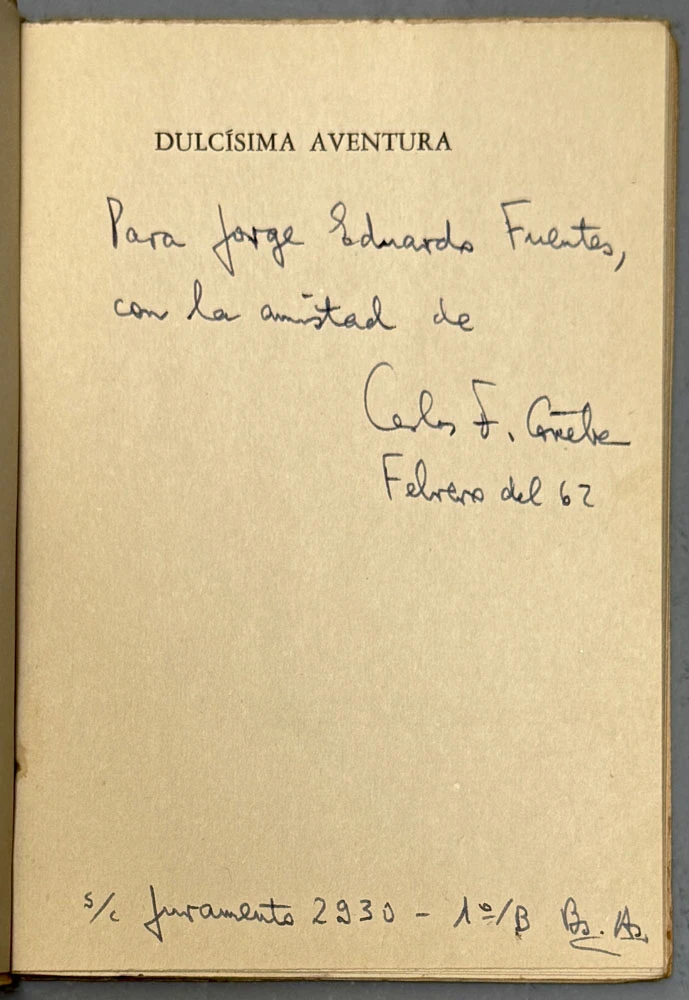 DULCÍSIMA AVENTURA
Para Jorge Eduardo Fuentes,
con la amistad de
Carlos F.
Febrero del 62
s/c Juramento 2930 - 1º/B Bs. As.